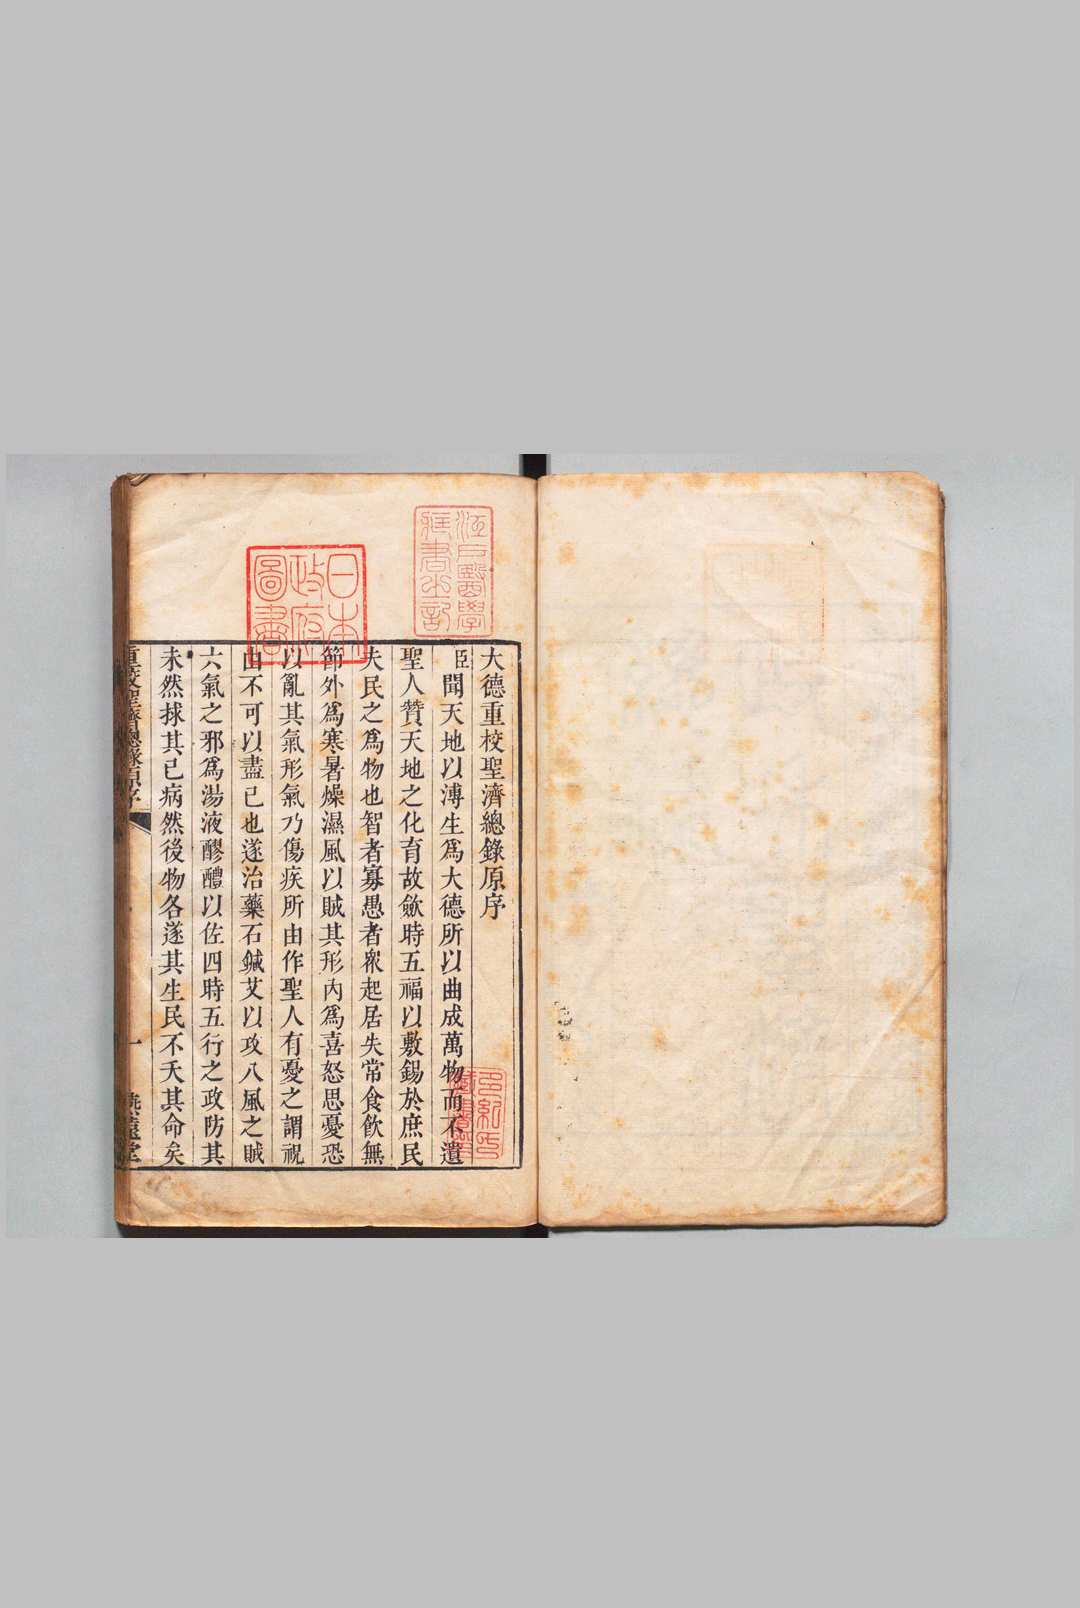 大德重校聖濟總錄原序
臣聞天地以溥生爲大德所以曲成萬物而不遺
聖人贊天地之化育故歛時五福以敷錫於庶民
夫民之爲物也智者寡愚者衆起居失常食飲無
節外爲寒暑燥濕風以賊其形內爲喜怒思憂恐
以亂其氣形氣乃傷疾所由作聖人有憂之謂祝
由不可以盡已也遂治藥石鍼艾以攻八風之賊
六氣之邪爲湯液醪醴以佐四時五行之政防其
未然捄其已病然後物各遂其生民不夭其命矣
重校聖濟總錄原序
一
江戶醫學
藏書之記
日本
政府
圖書